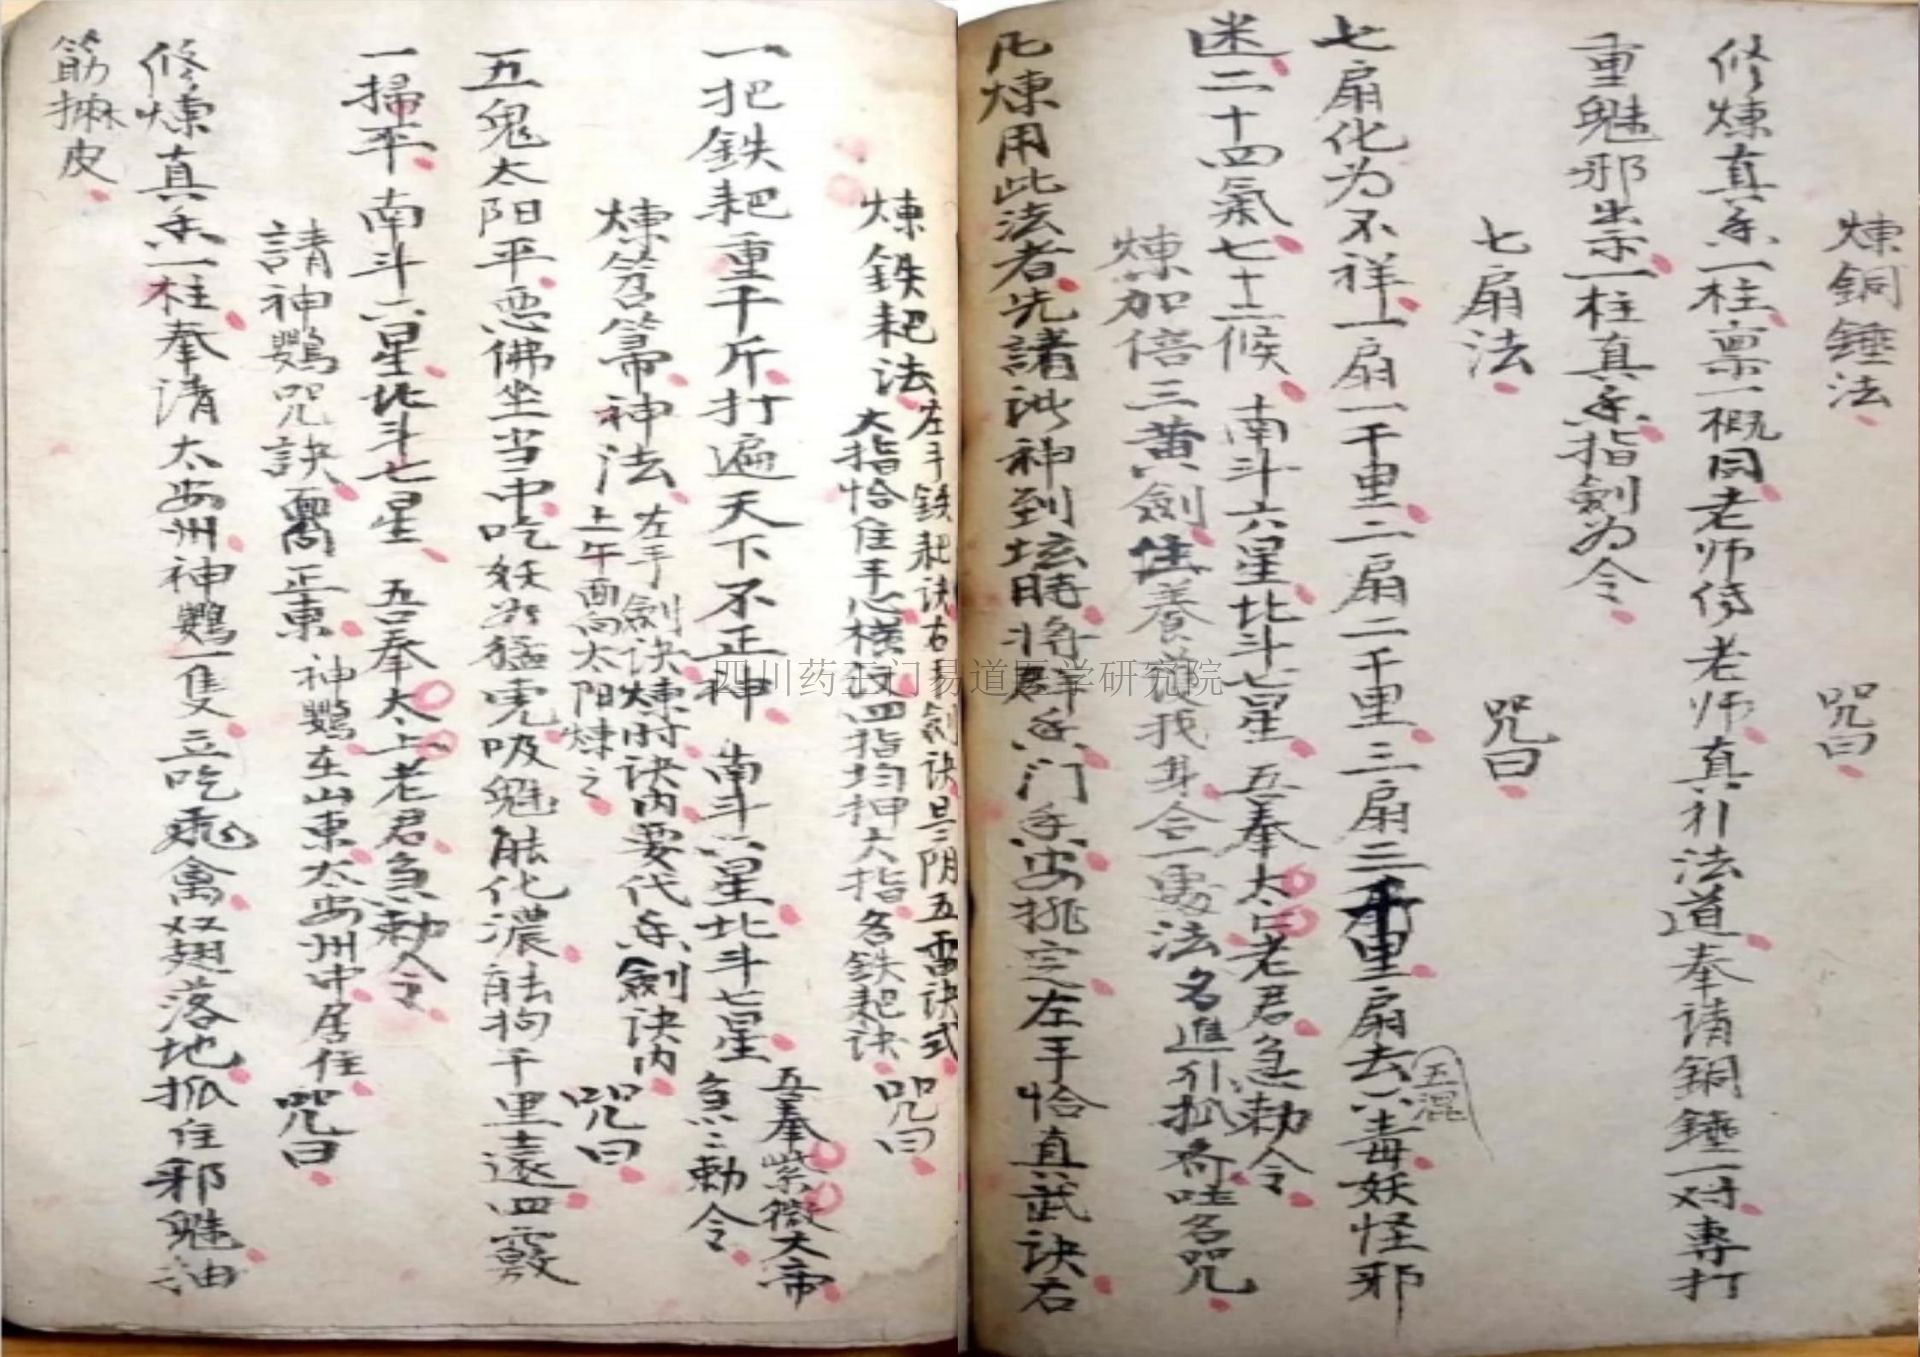 煉銅錘法 咒曰
修煉真香一柱禀一概同老师傳老师真礼法道奉请銅錘一对專打
重魁邪出宗一柱真香指劍为令
七扇法 咒曰
七扇化为不祥一扇一千里二扇二千里三扇三千里扇去六毒妖怪邪
五混
迷二十四氣七十二候南斗六星北斗七星 吾奉太上老君急勅令
煉加倍三黄劍住養養我身合一處法名進
凡煉用此法者先請訣神到坛時将群香门香安排定左手恰真武诀右
左手鉄耙诀右手剑诀是阴五雷诀式
煉鉄耙法 大指恰住手心横纹四指均押大指名鉄耙诀 咒曰
一把鉄耙重千斤打遍天下不正神 南斗六星北斗七星 吾奉紫微大帝
急急勅令
煉笤箒神法 左手劍诀煉时诀内要代香劍诀内 咒曰
上午面向太阳煉之
五鬼太阳平悪佛坐当中吃妖如猛虎吸魁能化濃能拘千里遠四
一掃平南斗六星北斗七星 吾奉太上老君急勅令
請神鸚咒訣面向正東神鸚在山東太安州中居住 咒曰
修煉真香一柱奉清太安州神鸚一隻立吃飛禽双翅落地抓住邪魁油
筋揪皮
四川药王门易道医学研究院